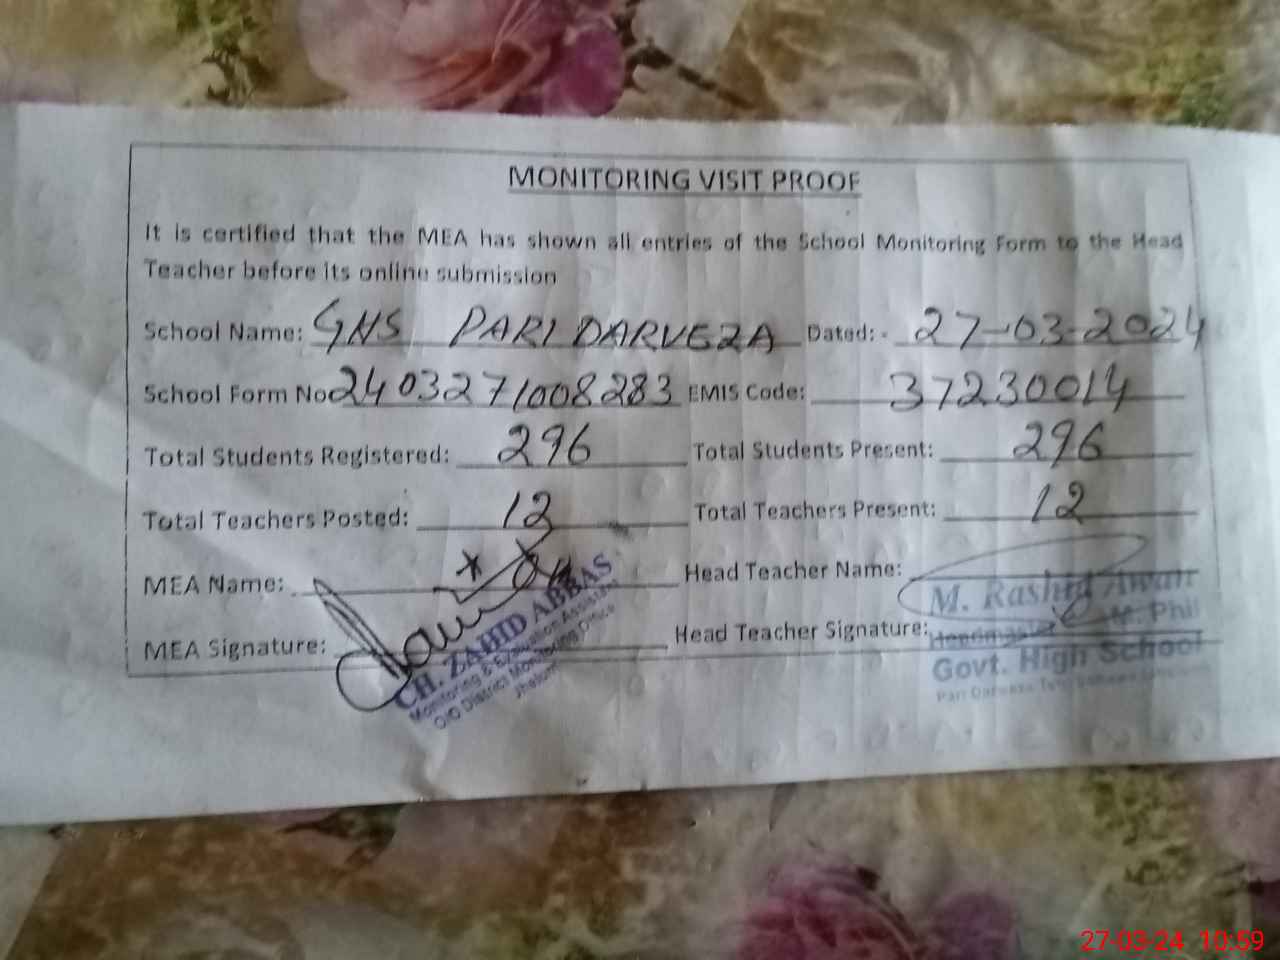 MONITORING VISIT PROOF
It is certified that the MEA has shown all entries of the School Monitoring Form to the Head
Teacher before its online submission
School Name: GHS PARI DARVEZA Dated:- 27-03-2024
School Form No 2403271008283 EMIS Code: 37230014
Total Students Registered: 296 Total Students Present: 296
Total Teachers Posted: 12 Total Teachers Present: 12
MEA Name: Head Teacher Name:
MEA Signature: Head Teacher Signature:
CH. ZAHID ABBAS
Monitoring & Evaluation Assistant
O/O District Monitoring Office
Jhelum
M. Rashid Awan
Headmaster M. Phil
Govt. High School
Pari Darveza
27-03-24 10:59